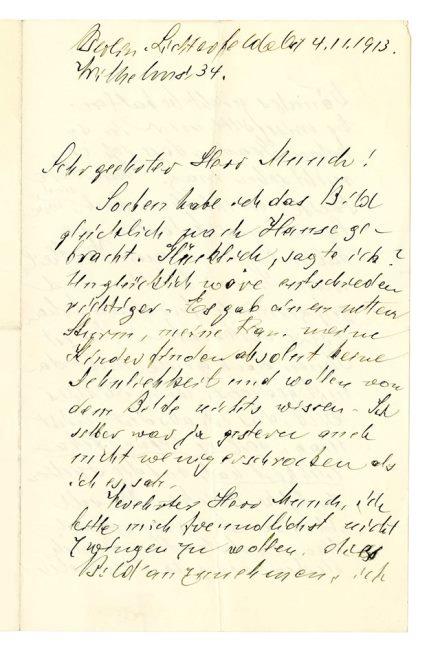 Berlin-Lichterfelde, d. 4.11.1913.
Wilhelmst 34.
Sehr geehrter Herr Munch!
Soeben habe ich das Bild
glücklich nach Hause ge-
bracht. Glücklich, sagte ich?
Unglücklich wäre entschieden
richtiger - Es gab einen netten
Sturm, meine Frau, meine
Kinder finden absolut keine
Aehnlichkeit und wollen von
dem Bilde nichts wissen - Ich
selber war ja gestern auch
nicht weniger erschrocken als
ich es sah.
Geehrter Herr Munch, ich
bitte mich freundlichst nicht
zwingen zu wollen, dies
Bild anzunehmen, ich